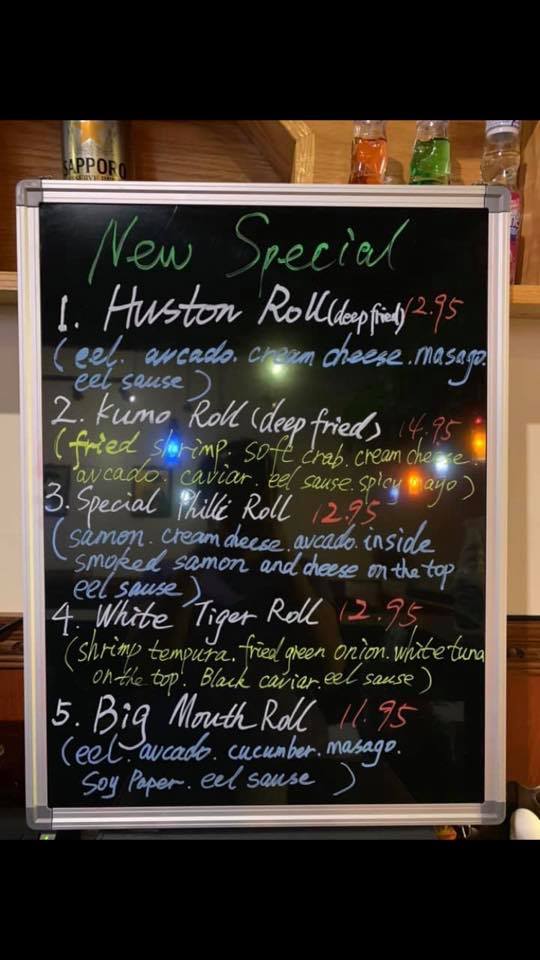 SAPPORO
New Special
1. Huston Roll (deep fried) 12.95
(eel. avcado. cream cheese. masago.
eel sause)
2. Kumo Roll (deep fried) 14.95
(fried shrimp. soft crab. cream cheese.
avcado. caviar. eel sause. spicy mayo)
3. Special Philli Roll 12.95
(samon. cream cheese. avcado. inside
smoked samon and cheese on the top
eel sause)
4. White Tiger Roll 12.95
(shrimp tempura. fried green onion. white tuna
on the top. Black caviar. eel sause)
5. Big Mouth Roll 11.95
(eel. avcado. cucumber. masago.
Soy Paper. eel sause )